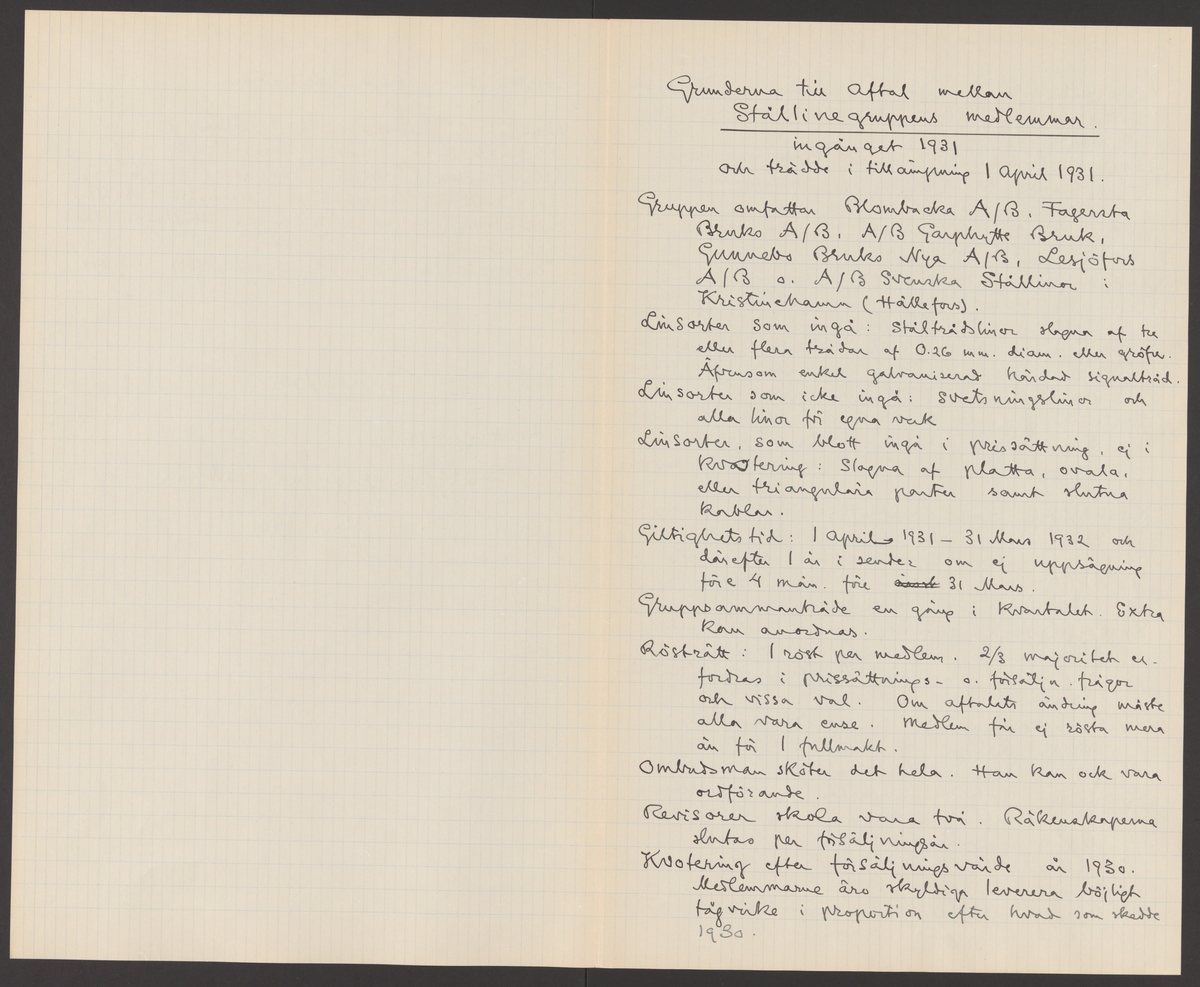 Grunderna till Aftal mellan
Stållinegruppens medlemmar.
ingånget 1931
och trädde i tillämpning 1 April 1931.
Gruppen omfattar Blombacka A/B, Fagersta
Bruks A/B, A/B Garphytte Bruk,
Gunnebo Bruks Nya A/B, Lesjöfors
A/B o. A/B Svenska Stållinor i
Kristinehamn (Hällefors).
Linsorter som ingå: Ståltrådslinor slagna af tre
eller flera trådar af 0.26 mm. diam. eller gröfre.
Äfvensom enkel galvaniserad härdad signaltråd.
Linsorter som icke ingå: Svetsningslinor och
alla linor för egna verk
Linsorter, som blott ingå i prissättning, ej i
kvotering: Slagna af platta, ovala,
eller triangulära parter samt slutna
kablar.
Giltighetstid: 1 April 1931 – 31 Mars 1932 och
därefter 1 år i sender om ej uppsägning
före 4 mån. före 31 Mars.
Gruppsammanträde en gång i kvartalet. Extra
kan anordnas.
Rösträtt: 1 röst per medlem. 2/3 majoritet er-
fordras i prissättnings- o. försäljn. frågor
och vissa val. Om aftalets ändring måste
alla vara ense. Medlem får ej rösta mera
än för 1 fullmakt.
Ombudsman sköter det hela. Han kan ock vara
ordförande.
Revisorer skola vara två. Räkenskaperna
slutas per försäljningsår.
Kvotering efter försäljningsvärde år 1930.
Medlemmarne äro skyldiga leverera böjligt
tågvirke i proportion efter hvad som skedde
1930.